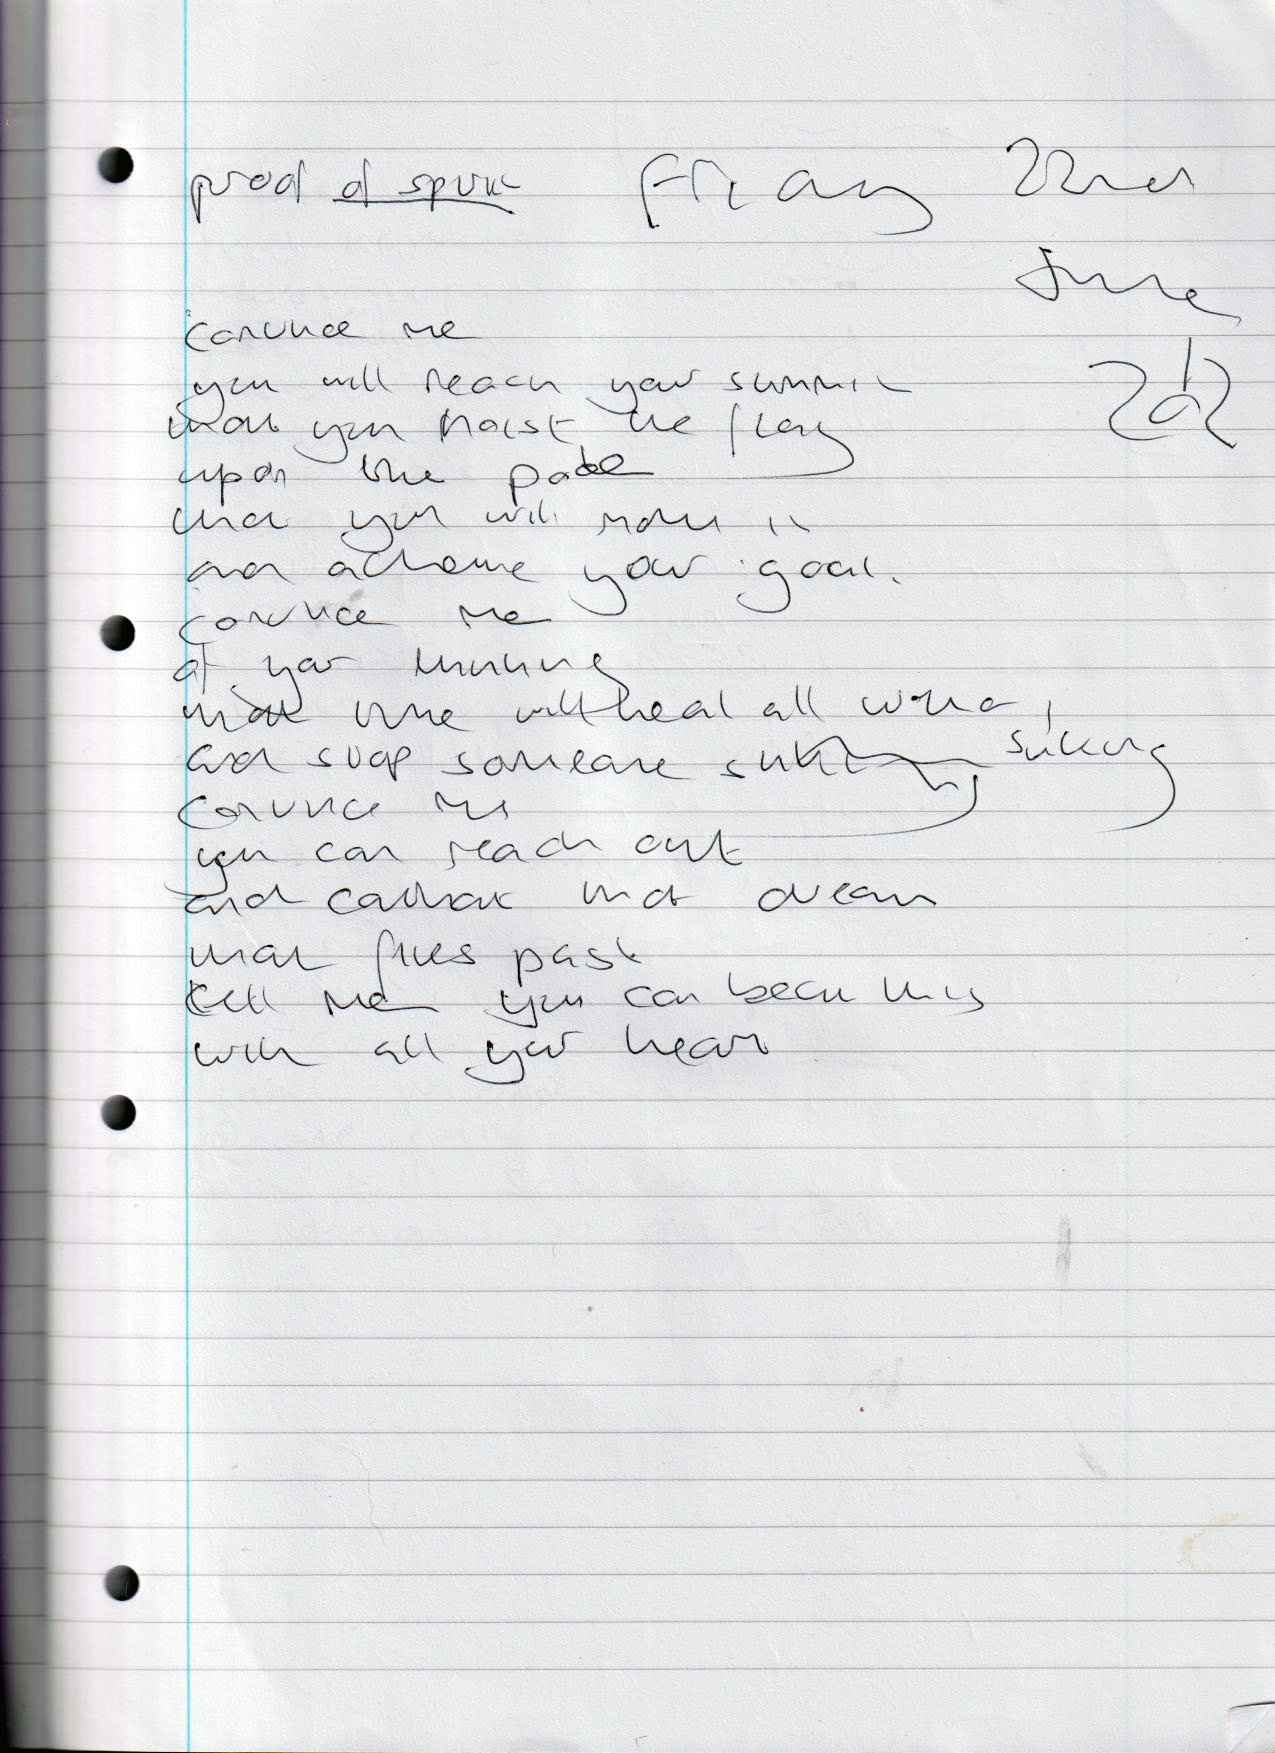 proof of spirit Friday 22nd
June
2012
convince me
you will reach your summit
that you hoist the flag
upon the pole
that you will make it
and achieve your goal.
convince me
of your
that time will heal all
and stop someone sinking sinking
convince me
you can reach out
and catch that dream
that flies past
tell me you can this
with all your heart